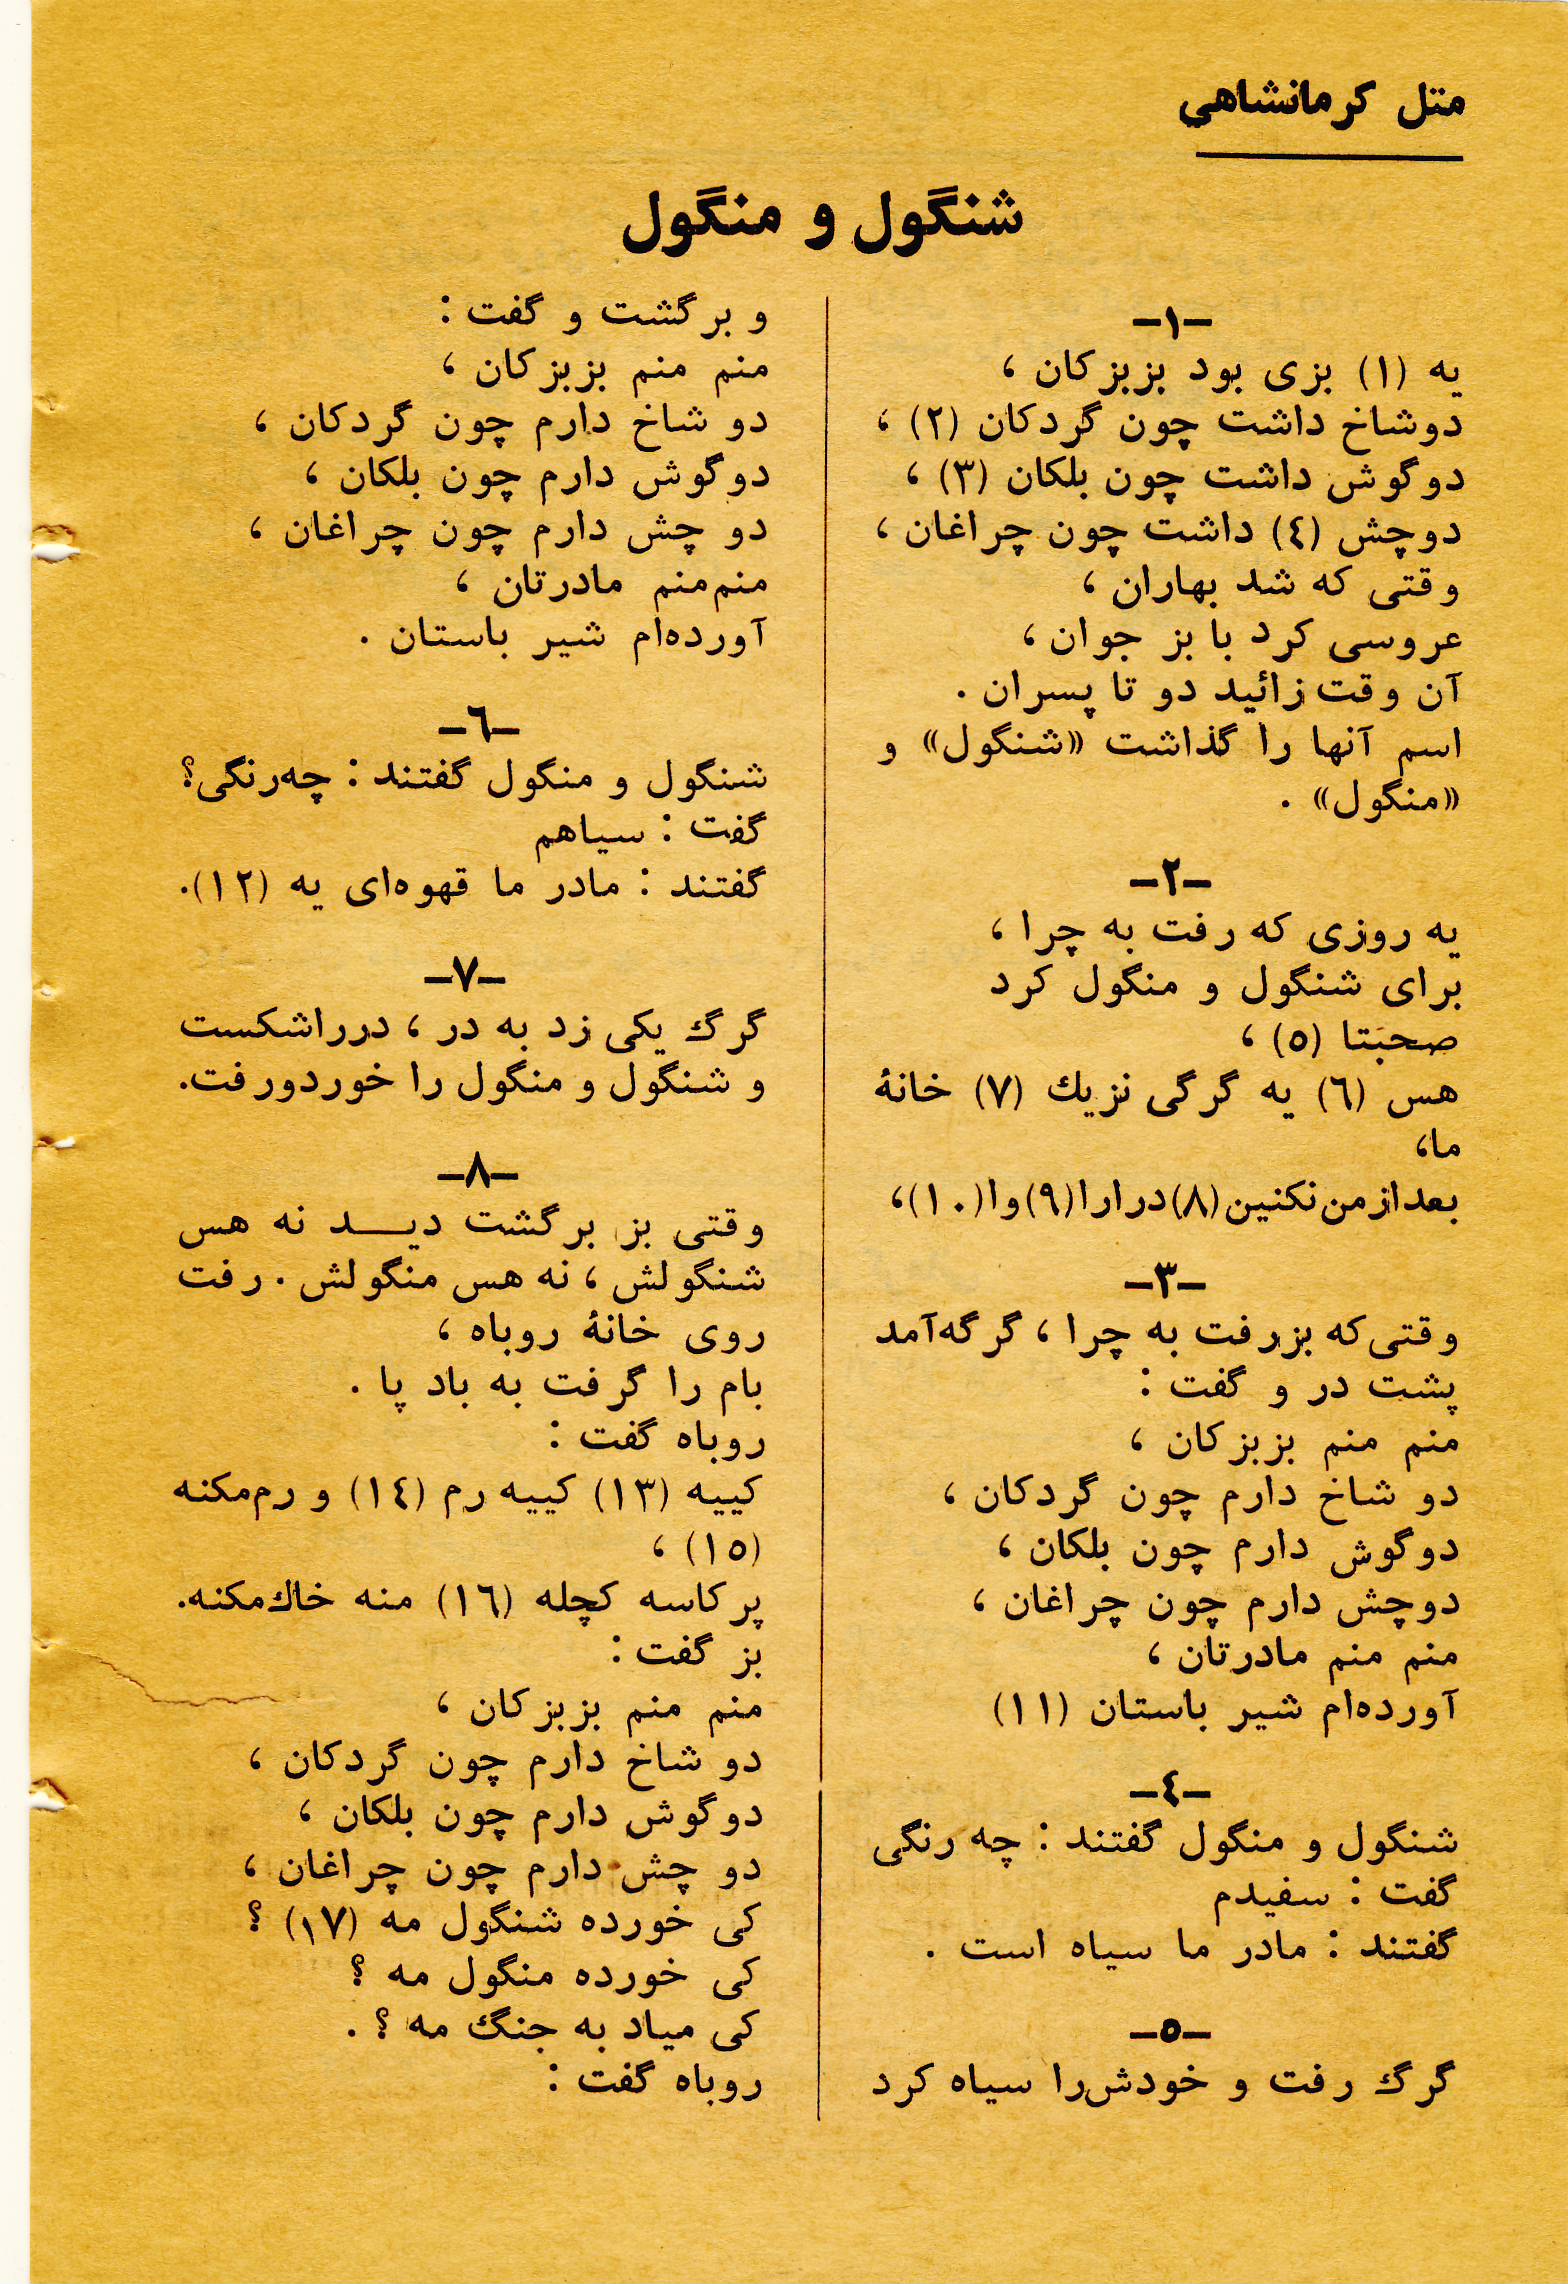 متل کرمانشاهی
شنگول و منگول
-۱-
یه (۱) بزی بود بزبزکان ،
دوشاخ داشت چون گردکان (۲) ،
دوگوش داشت چون بلکان (۳) ،
دوچش (٤) داشت چون چراغان ،
وقتی که شد بهاران ،
عروسی کرد با بز جوان ،
آن وقت زائید دو تا پسران .
اسم آنها را گذاشت «شنگول» و
«منگول» .
-۲-
یه روزی که رفت به چرا ،
برای شنگول و منگول کرد
صحبَتا (٥) ،
هس (٦) یه گرگی نزیك (۷) خانهٔ
ما،
بعداز من نکنین (۸) درارا (۹) وا (۱۰)،
-۳-
وقتی‌که بزرفت به چرا ، گرگه‌آمد
پشت در و گفت :
منم منم بزبزکان ،
دو شاخ دارم چون گردکان ،
دوگوش دارم چون بلکان ،
دوچش دارم چون چراغان ،
منم منم مادرتان ،
آورده‌ام شیر باستان (۱۱)
-٤-
شنگول و منگول گفتند : چه رنگی
گفت : سفیدم
گفتند : مادر ما سیاه است .
-٥-
گرگ رفت و خودش‌را سیاه کرد
و برگشت و گفت :
منم منم بزبزکان ،
دو شاخ دارم چون گردکان ،
دوگوش دارم چون بلکان ،
دو چش دارم چون چراغان ،
منم‌منم مادرتان ،
آورده‌ام شیر باستان .
-٦-
شنگول و منگول گفتند : چه‌رنگی؟
گفت : سیاهم
گفتند : مادر ما قهوه‌ای یه (۱۲).
-۷-
گرگ یکی زد به در ، درراشکست
و شنگول و منگول را خوردورفت.
-۸-
وقتی بز برگشت دیـــد نه هس
شنگولش ، نه هس منگولش . رفت
روی خانهٔ روباه ،
بام را گرفت به باد پا .
روباه گفت :
کییه (۱۳) کییه رم (۱٤) و رم‌مکنه
(۱٥) ،
پرکاسه کچله (۱٦) منه خاك‌مکنه.
بز گفت :
منم منم بزبزکان ،
دو شاخ دارم چون گردکان ،
دوگوش دارم چون بلکان ،
دو چش دارم چون چراغان ،
کی خورده شنگول مه (۱۷) ؟
کی خورده منگول مه ؟
کی میاد به جنگ مه ؟ .
روباه گفت :